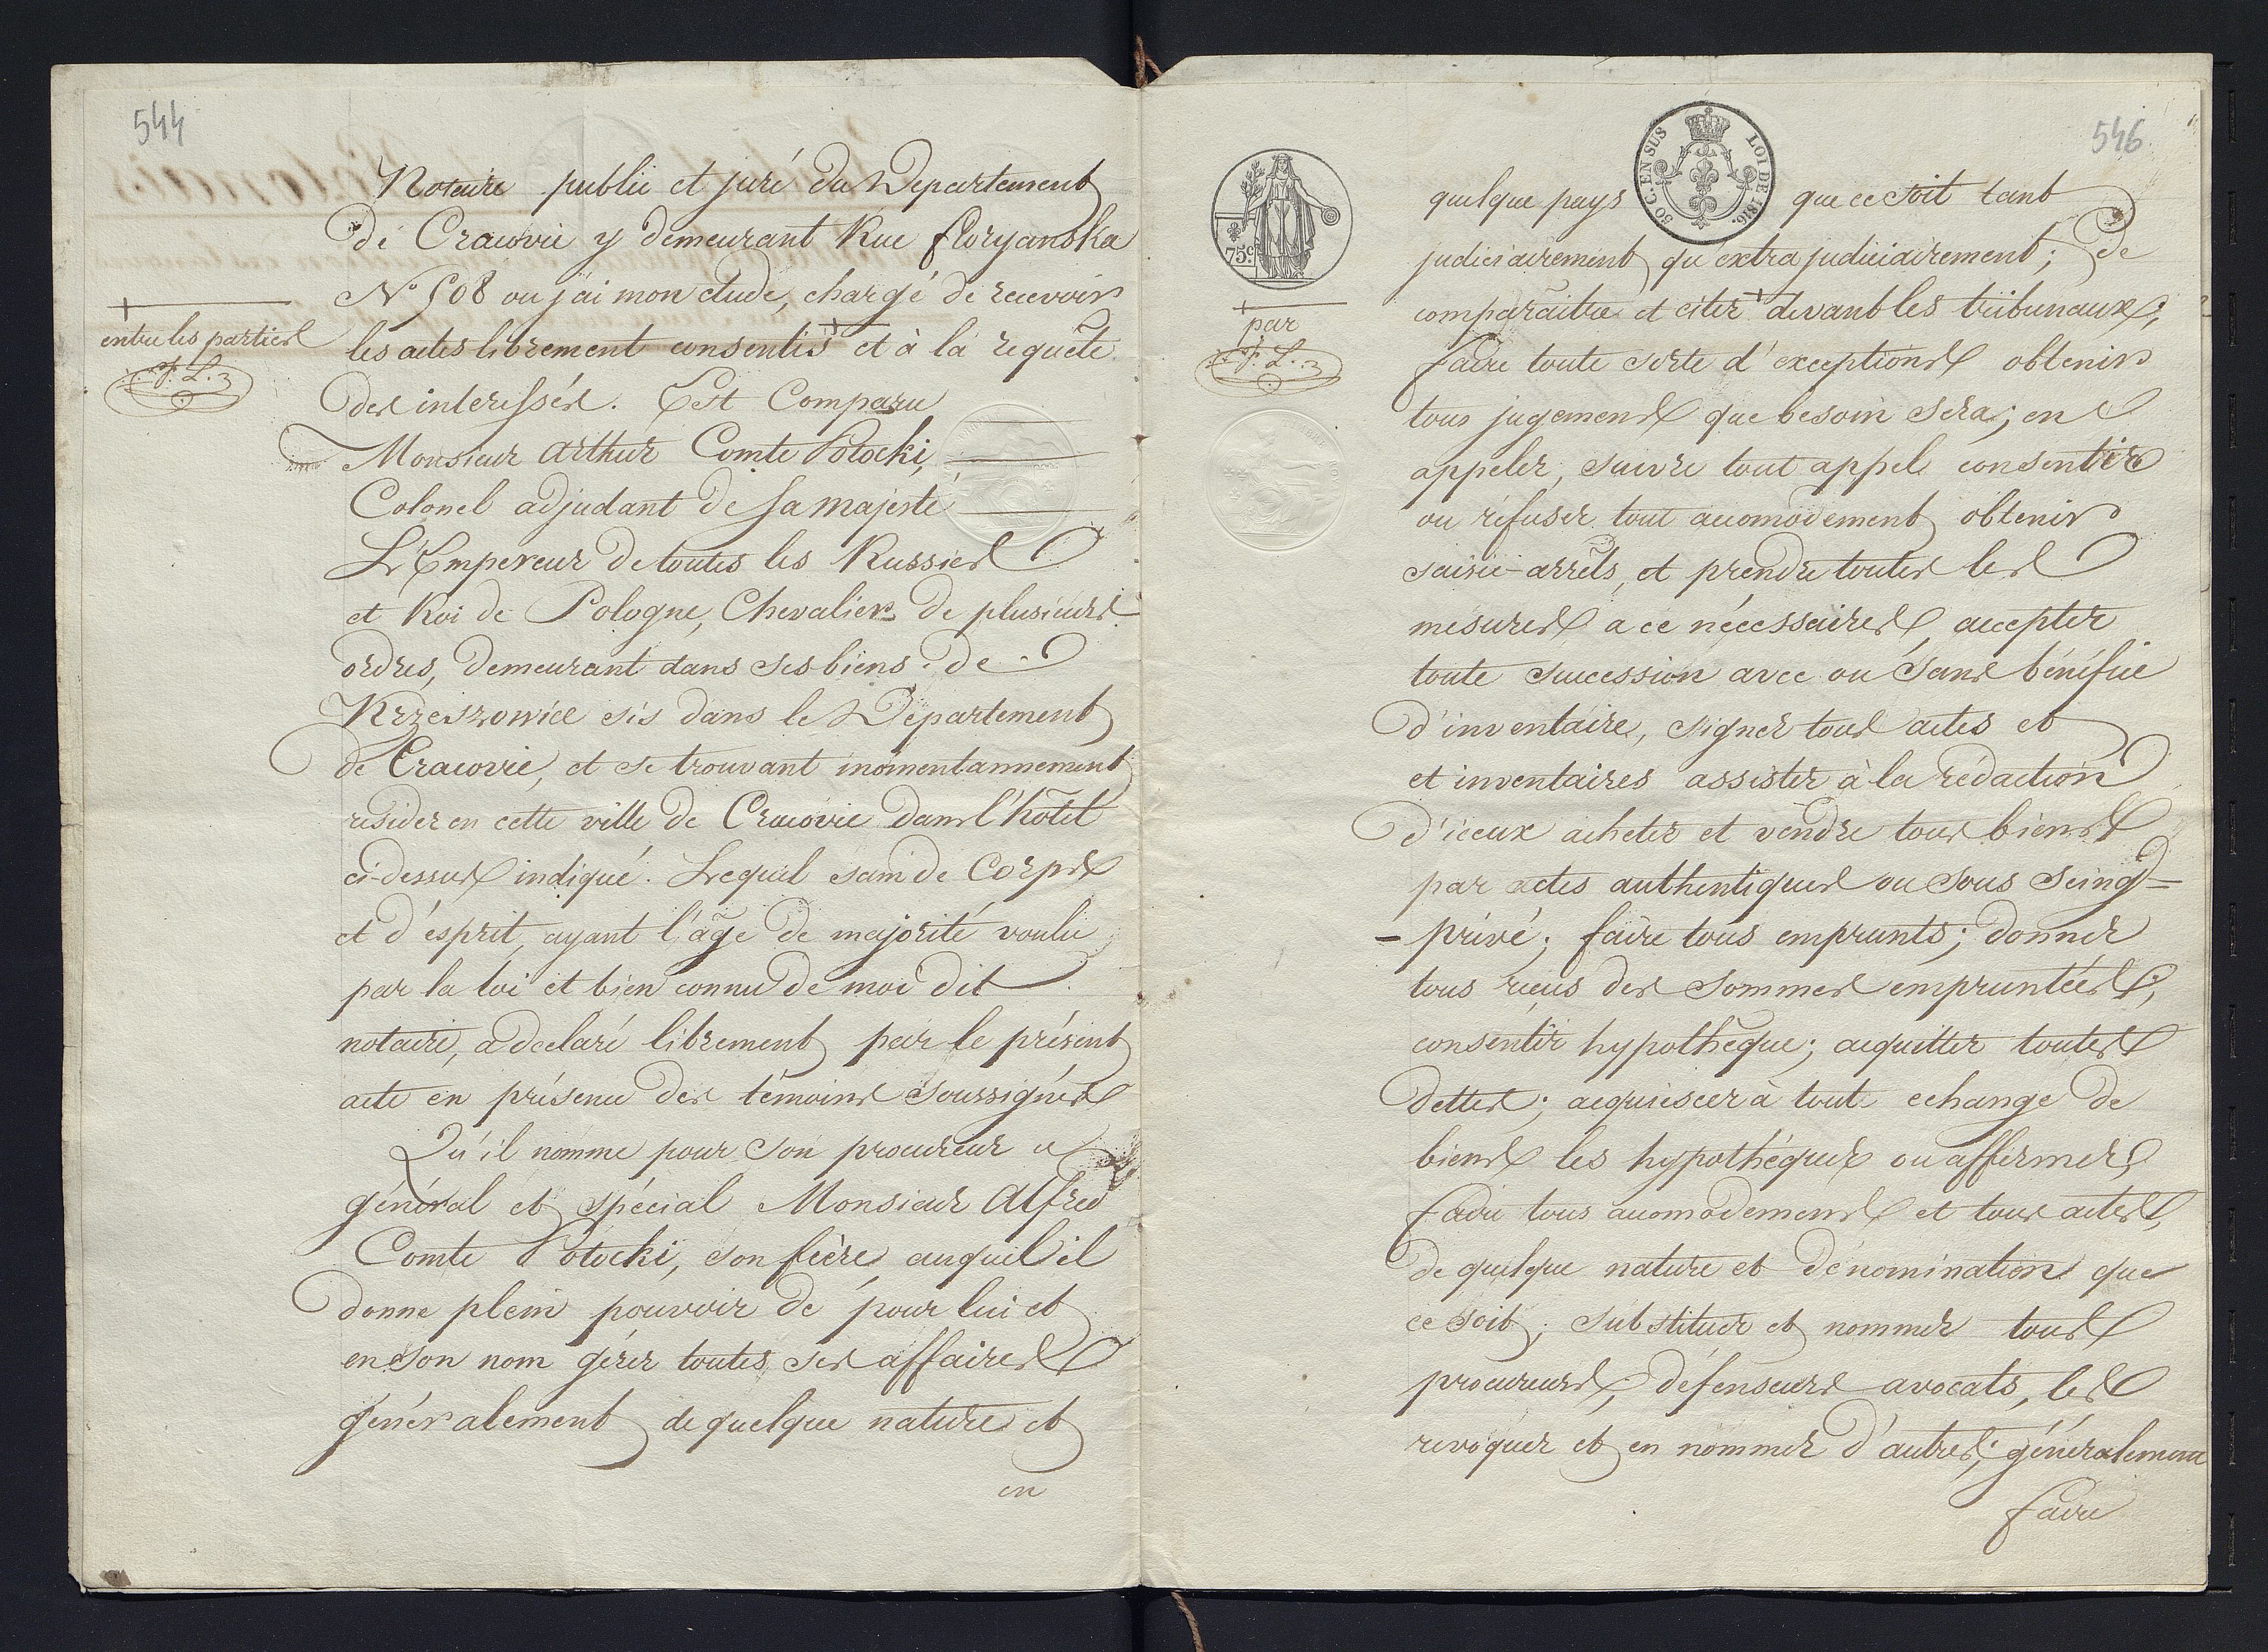 544
Notaire public et juré du Departement
de Cracovie y demeurant Rue floryanska
N° 508 ou j'ai mon etude, chargé de recevoir
entre les parties
les actes librement consentis et à la requête
F. L.
des interessés. Est Comparu
Monsieur Arthur Comte Potocki,
Colonel adjudant de Sa Majesté
L'Empereur de toutes les Russies
et Roi de Pologne, Chevalier de plusieurs
ordres, demeurant dans ses biens de
Krzeszowice sis dans le Departement
de Cracovie, et se trouvant momentannement
resider en cette ville de Cracovie dans l'hôtel
ci-dessus indiqué. Lequel sain de Corps
et d'esprit, ayant l'âge de majorité voulu
par la loi et bien connu de moi dit
notaire, a declaré librement par le présent
acte en présence des témoins soussignés
Qu'il nomme pour son procureur
général et spécial Monsieur Alfred
Comte Potocki, son frère, auquel il
donne plein pouvoir de pour lui et
en son nom gérer toutes ses affaires
généralement de quelque nature et
en
546
30 C. EN SUS LOI DE 1816.
75 c.
quelque pays que ce soit tant
judiciairement qu'extrajudiciairement; de
comparaitre et citer devant les tribunaux;
par
F. L.
faire toute sorte d'exceptions obtenir
tous jugemens que besoin sera; en
appeler, suivre tout appel consentir
ou réfuser tout acomodement obtenir
saisie-arrêts, et prendre toutes les
mesures a ce nécessaires, accepter
toute succession avec ou sans bénéfice
d'inventaire, signer tous actes et
et inventaires assister à la rédaction
d'iceux acheter et vendre tous biens
par actes authentiques ou sous seing-
-privé; faire tous emprunts; donner
tous reçus des sommes empruntées;
consentir hypothèque; acquitter toutes
dettes; acquiescer à tout echange de
biens les hypothéquer ou affermer;
faire tous acomodemens et tous actes,
de quelque nature et dénomination que
ce soit; substituer et nommer tous
procureurs, défenseurs avocats, les
revoquer et en nommer d'autres; généralement
faire